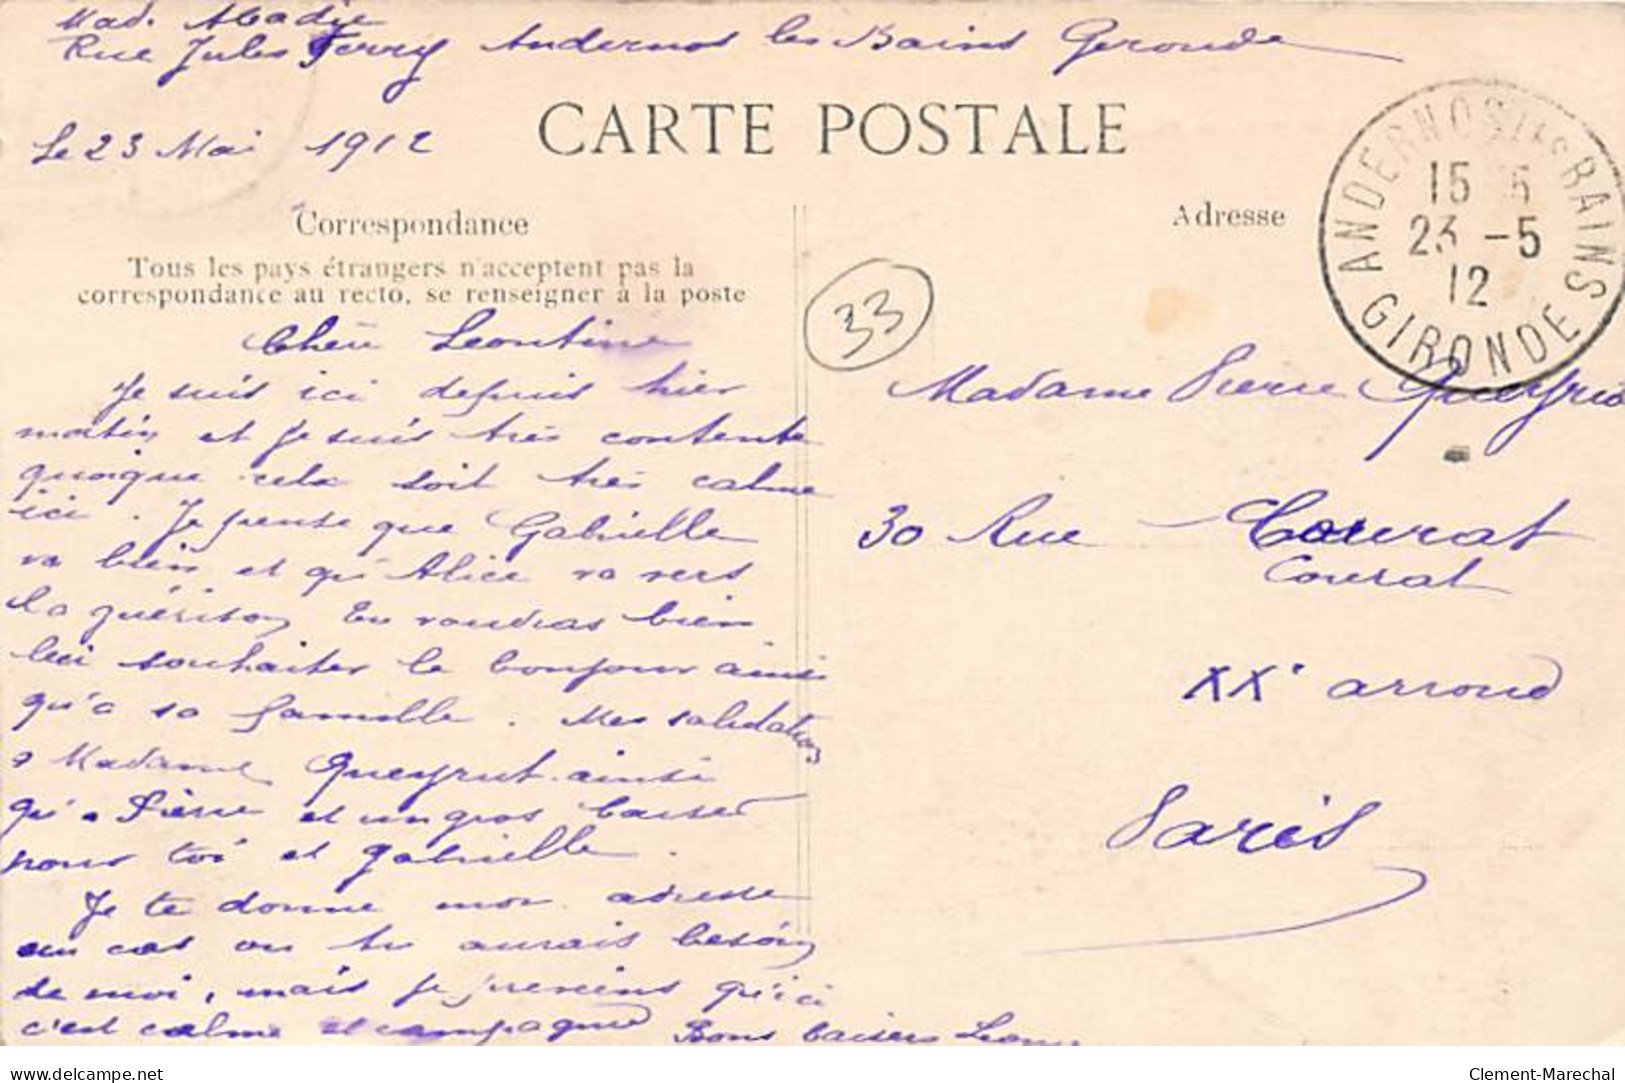 Mad. Abadie
Rue Jules Ferry Andernos les Bains Gironde
Le 23 Mai 1912
CARTE POSTALE
ANDERNOS LES BAINS
15 15
23 -5
12
GIRONDE
Correspondance
Adresse
Tous les pays étrangers n'acceptent pas la
correspondance au recto, se renseigner à la poste
33
Chère Leontine
Je suis ici depuis hier
matin et je suis très contente
quoique cela soit très calme
ici. Je pense que Gabrielle
va bien et qu'Alice va vers
la guérison Tu voudras bien
lui souhaiter le bonjour ainsi
qu'a sa famille. Mes salutations
a Madame Queyrut ainsi
qu'a Pierre et un gros baiser
pour toi et Gabrielle.
Je te donne mon adresse
en cas ou tu aurais besoin
de moi, mais je previens qu'ici
c'est calme et campagne Bons baisers
Madame Pierre
30 Rue Courat
Courat
XXe arrond
Paris
Clement-Marechal
delcampe.net